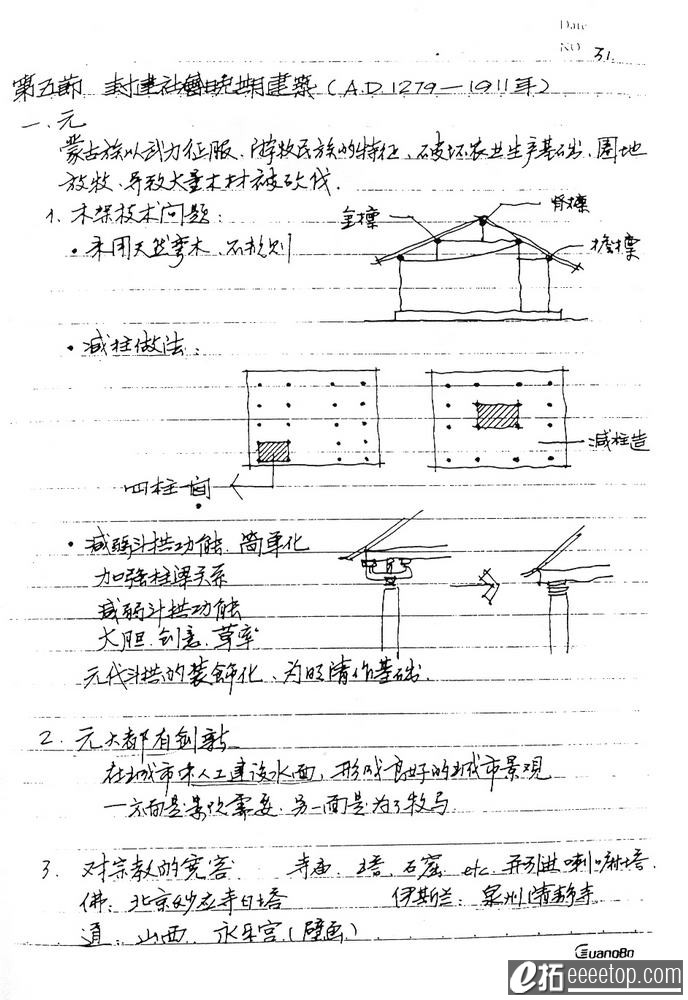 Date
NO 31.
第五節 封建社會晚期建築(A.D.1279—1911年)
一、元
蒙古族以武力征服、游牧民族的特征、破坏农业生产基础、圈地
放牧、导致大量木材被砍伐.
1. 木架技术问题:
金檩
脊檩
• 采用天然弯木、不规则
檐檩
• 減柱做法:
減柱造
四柱一间
• 减弱斗拱功能、简单化
加强柱梁关系
减弱斗拱功能
大胆、创意、草率
元代斗拱的装飾化、为明清作基础.
2. 元大都有创新
在城市中人工建设水面,形成良好的城市景观
一方面是景观需要,另一面是为了牧马.
3. 对宗教的宽容 寺庙、塔、石窟 etc. 并引进喇嘛塔.
佛: 北京妙应寺白塔 伊斯兰: 泉州清静寺
道: 山西、永乐宫(壁画)
GuangBo
e拓 eeeetop.com